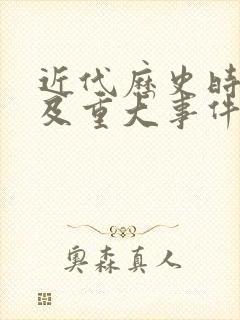 近代历史时
及重大事件
奥森真人